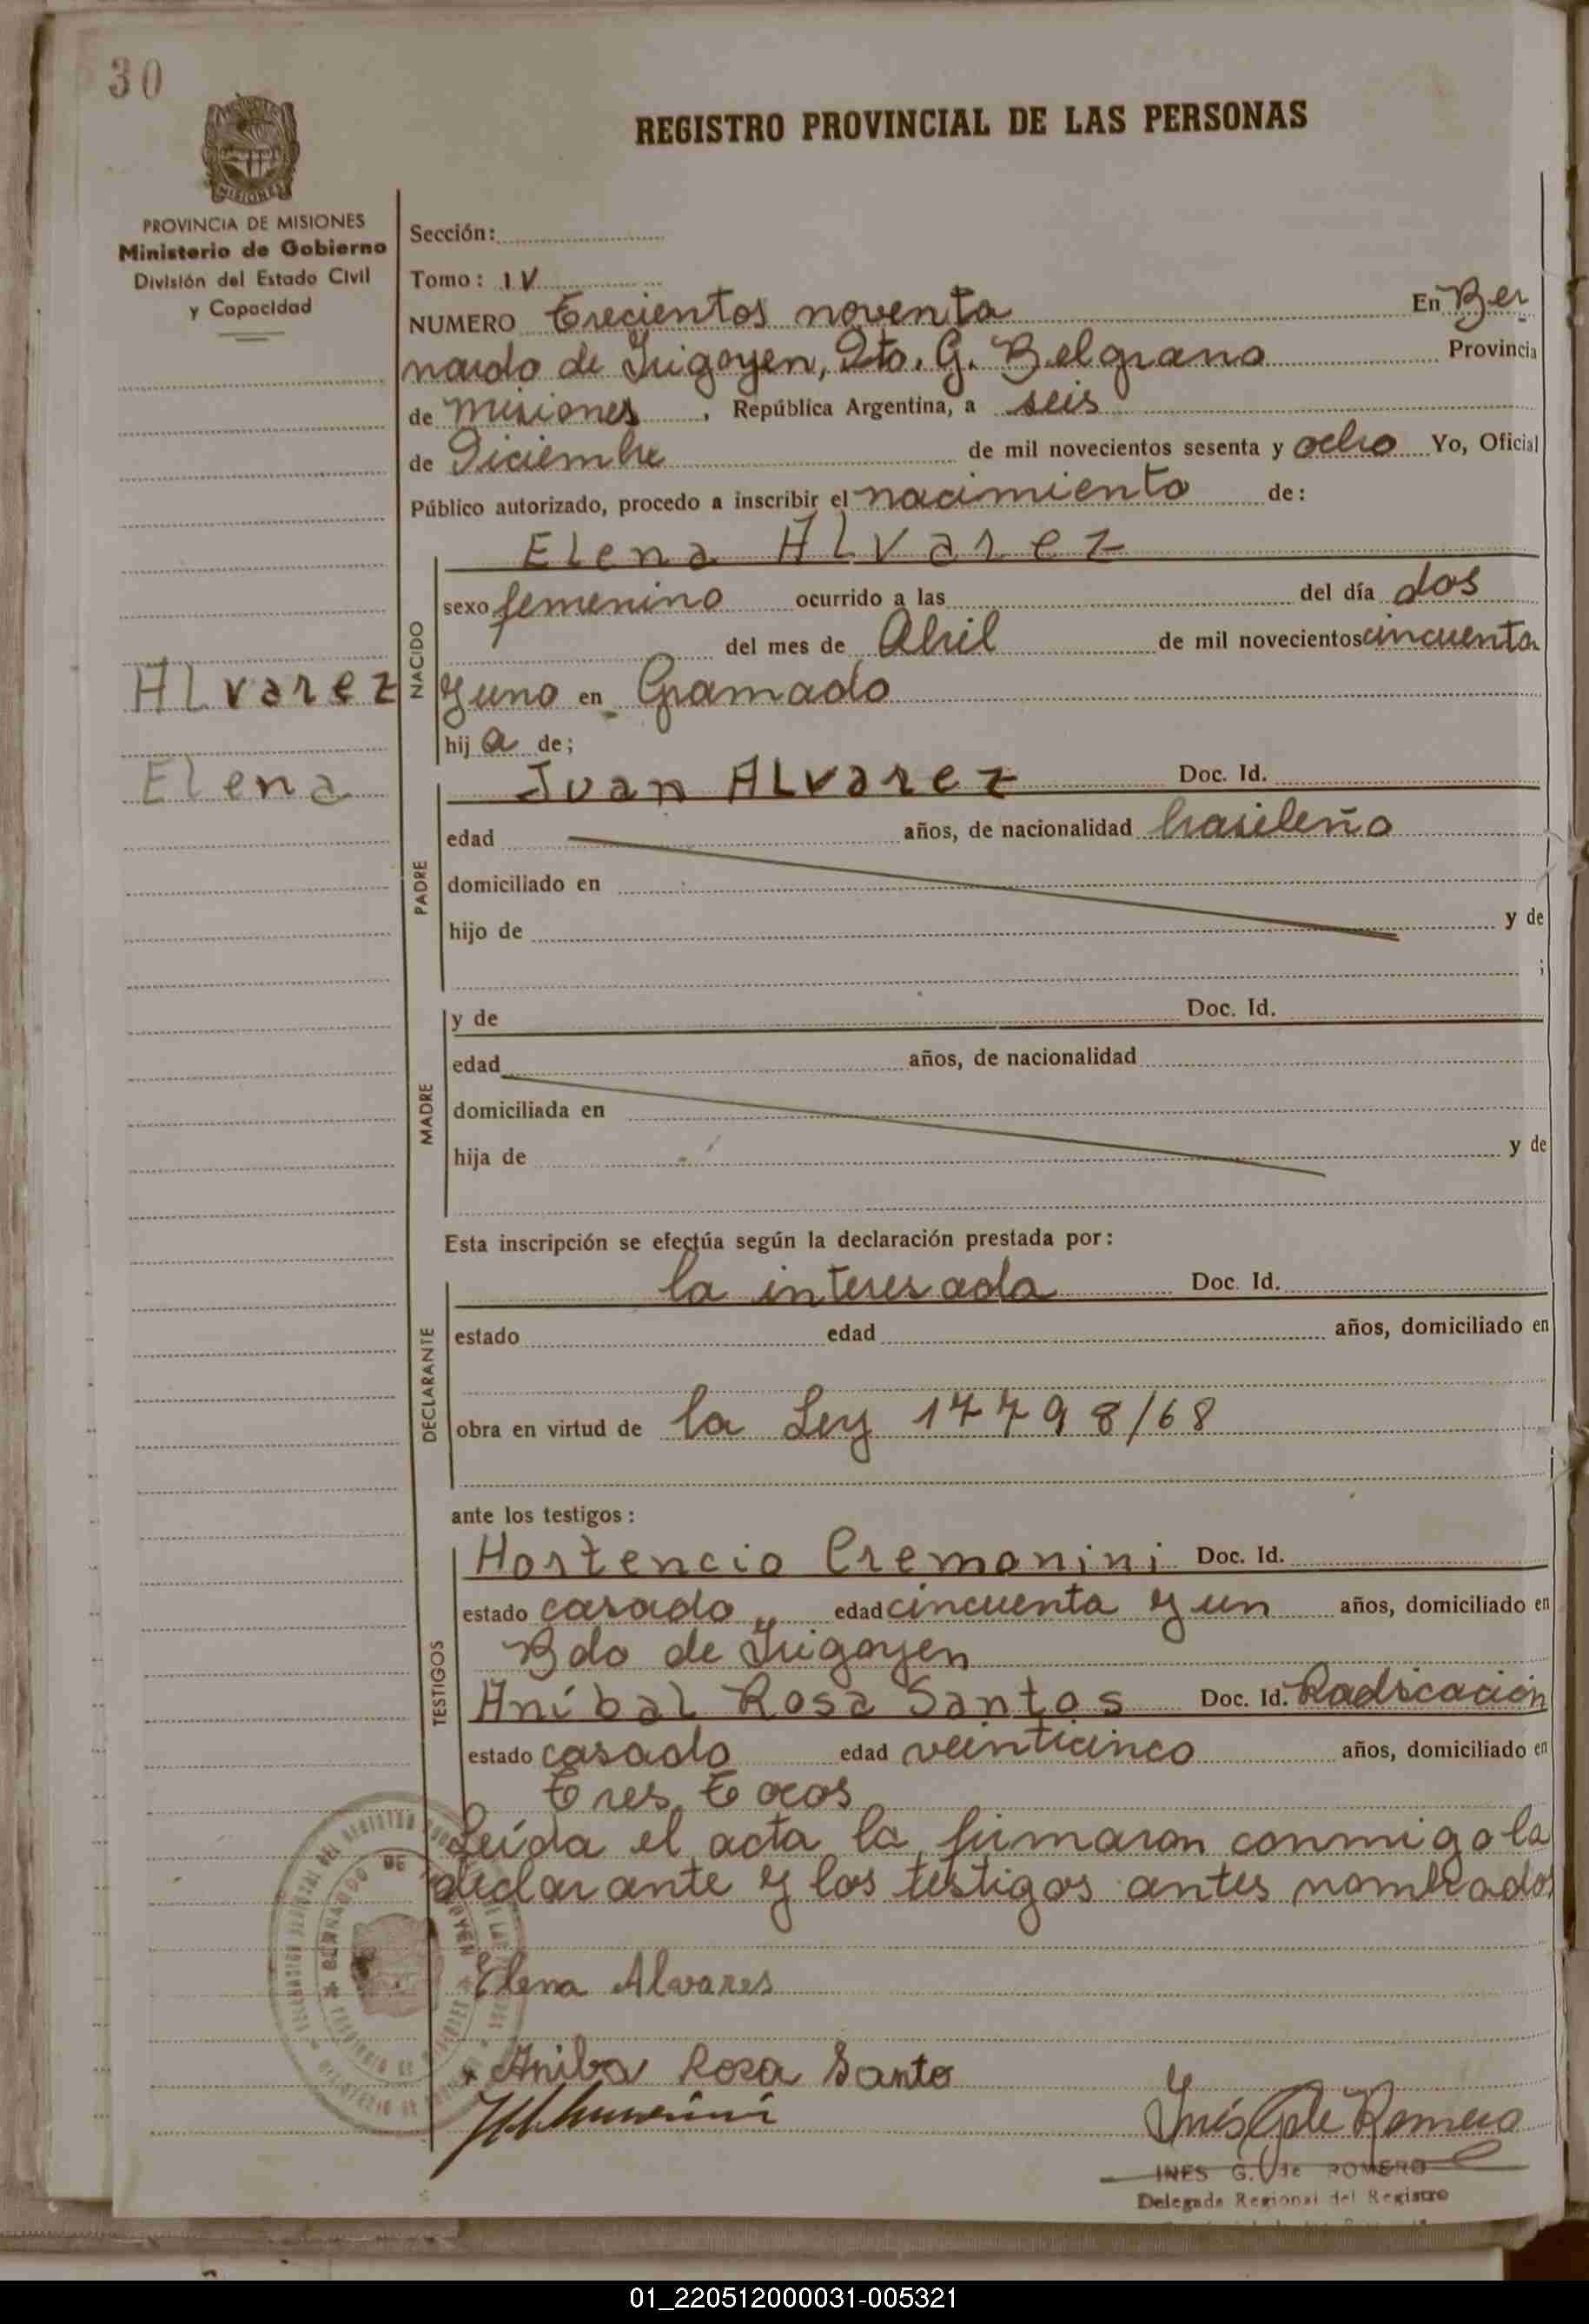 30
REGISTRO PROVINCIAL DE LAS PERSONAS
MISIONES
PROVINCIA DE MISIONES
Ministerio de Gobierno
División del Estado Civil
y Capacidad
Sección:
Tomo: IV
NUMERO Trecientos noventa En Ber
nardo de Irigoyen, Dto. G. Belgrano Provincia
de Misiones, República Argentina, a seis
de Diciembre de mil novecientos sesenta y ocho Yo, Oficial
Público autorizado, procedo a inscribir el nacimiento de:
Elena Alvarez
NACIDO
sexo femenino ocurrido a las del día dos
del mes de Abril de mil novecientos cincuenta
Alvarez
y uno en Gramado
hija de;
Elena
PADRE
Juan Alvarez Doc. Id.
edad años, de nacionalidad brasileño
domiciliado en
hijo de y de
;
MADRE
y de Doc. Id.
edad años, de nacionalidad
domiciliada en
hija de y de
Esta inscripción se efectúa según la declaración prestada por:
DECLARANTE
la interesada Doc. Id.
estado edad años, domiciliado en
obra en virtud de la Ley 17798/68
ante los testigos:
TESTIGOS
Hortencio Cremonini Doc. Id.
estado casado edad cincuenta y un años, domiciliado en
Bdo de Irigoyen
Aníbal Rosa Santos Doc. Id. Radicación
estado casado edad veinticinco años, domiciliado en
Tres Tocos
Leída el acta la firmaron conmigo la
declarante y los testigos antes nombrados
BERNARDO DE IRIGOYEN
Elena Alvares
Aniba Rosa Santo
Inés G de Romero
INES G. de ROMERO
Delegada Regional del Registro
01_220512000031-005321